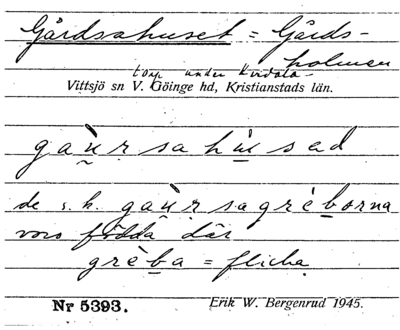 Gårdsahuset = Gårds-
holmen
torp under
Vittsjö sn V. Göinge hd, Kristianstads län.
gaùrsahused
de s. k. gaùrsagrèborna
voro födda där
grèba = flicka
Nr 5393. Erik W. Bergenrud 1945.